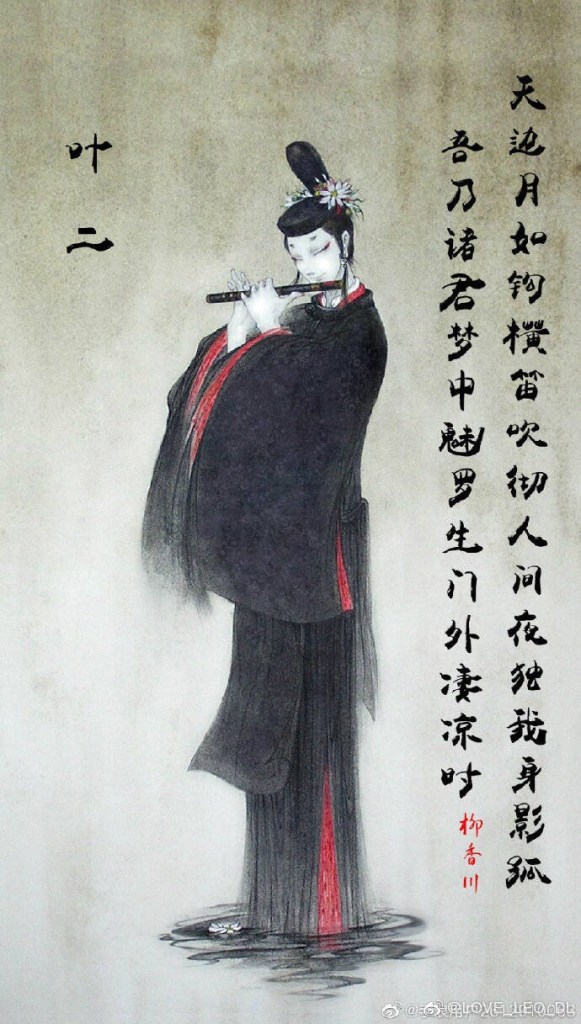 天边月如钩横笛吹彻人间夜独我身影孤
吾乃诸君梦中魅罗生门外凄凉时
柳香川
叶二
@LOVE_LEO_DL